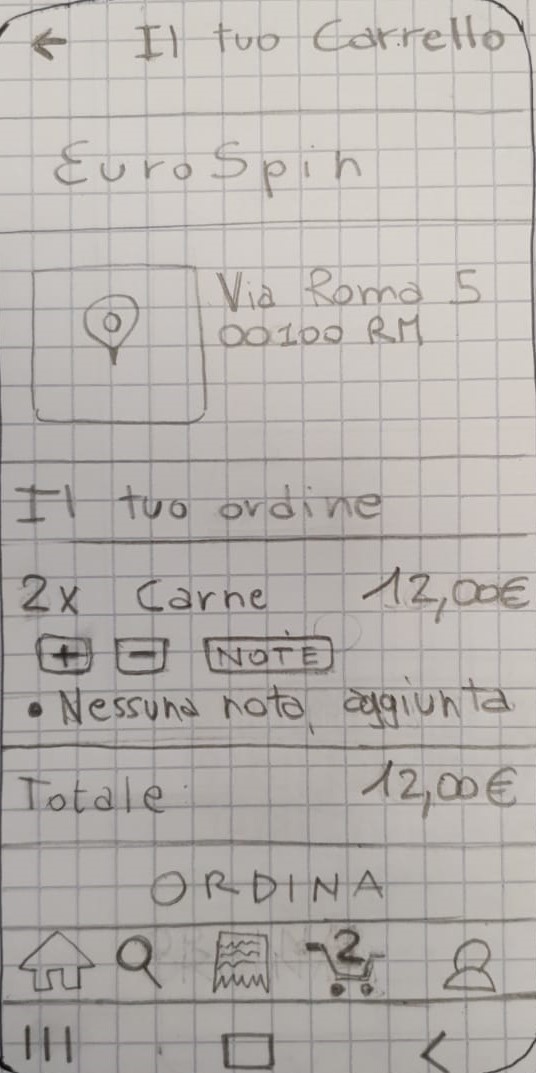 ← Il tuo Carrello
EuroSpin
Via Roma 5
00100 RM
Il tuo ordine
2x Carne 12,00€
+ - NOTE
• Nessuna nota aggiunta
Totale 12,00€
ORDINA
2